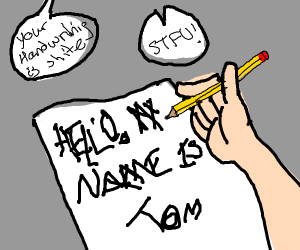 your
Handwriting
is shite!
STFU!
HELLO, MY
NAME IS
TOM